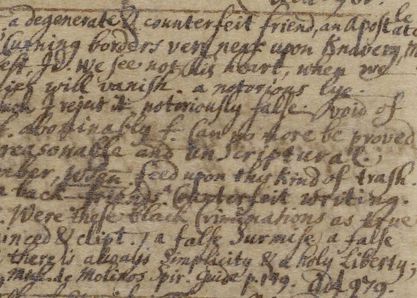 a degenerate & counterfeit friend, an Apostate
Cunning borders very near upon Knavery,
est. Jd. We see not his heart, when we
lies will vanish. a notorious lye.
such I reject it notoriously false. void of
t. abominably f. Can no more be proved
reasonable and unscriptural.
mber, when feed upon this kind of trash
a back-friend. Counterfeit writing.
Were these black Criminations as true
minced & clipt. a false Surmise, a false
there is always Simplicity & a holy Liberty.
Mich. de Molinos. Spir. Guide p. 139. 979.